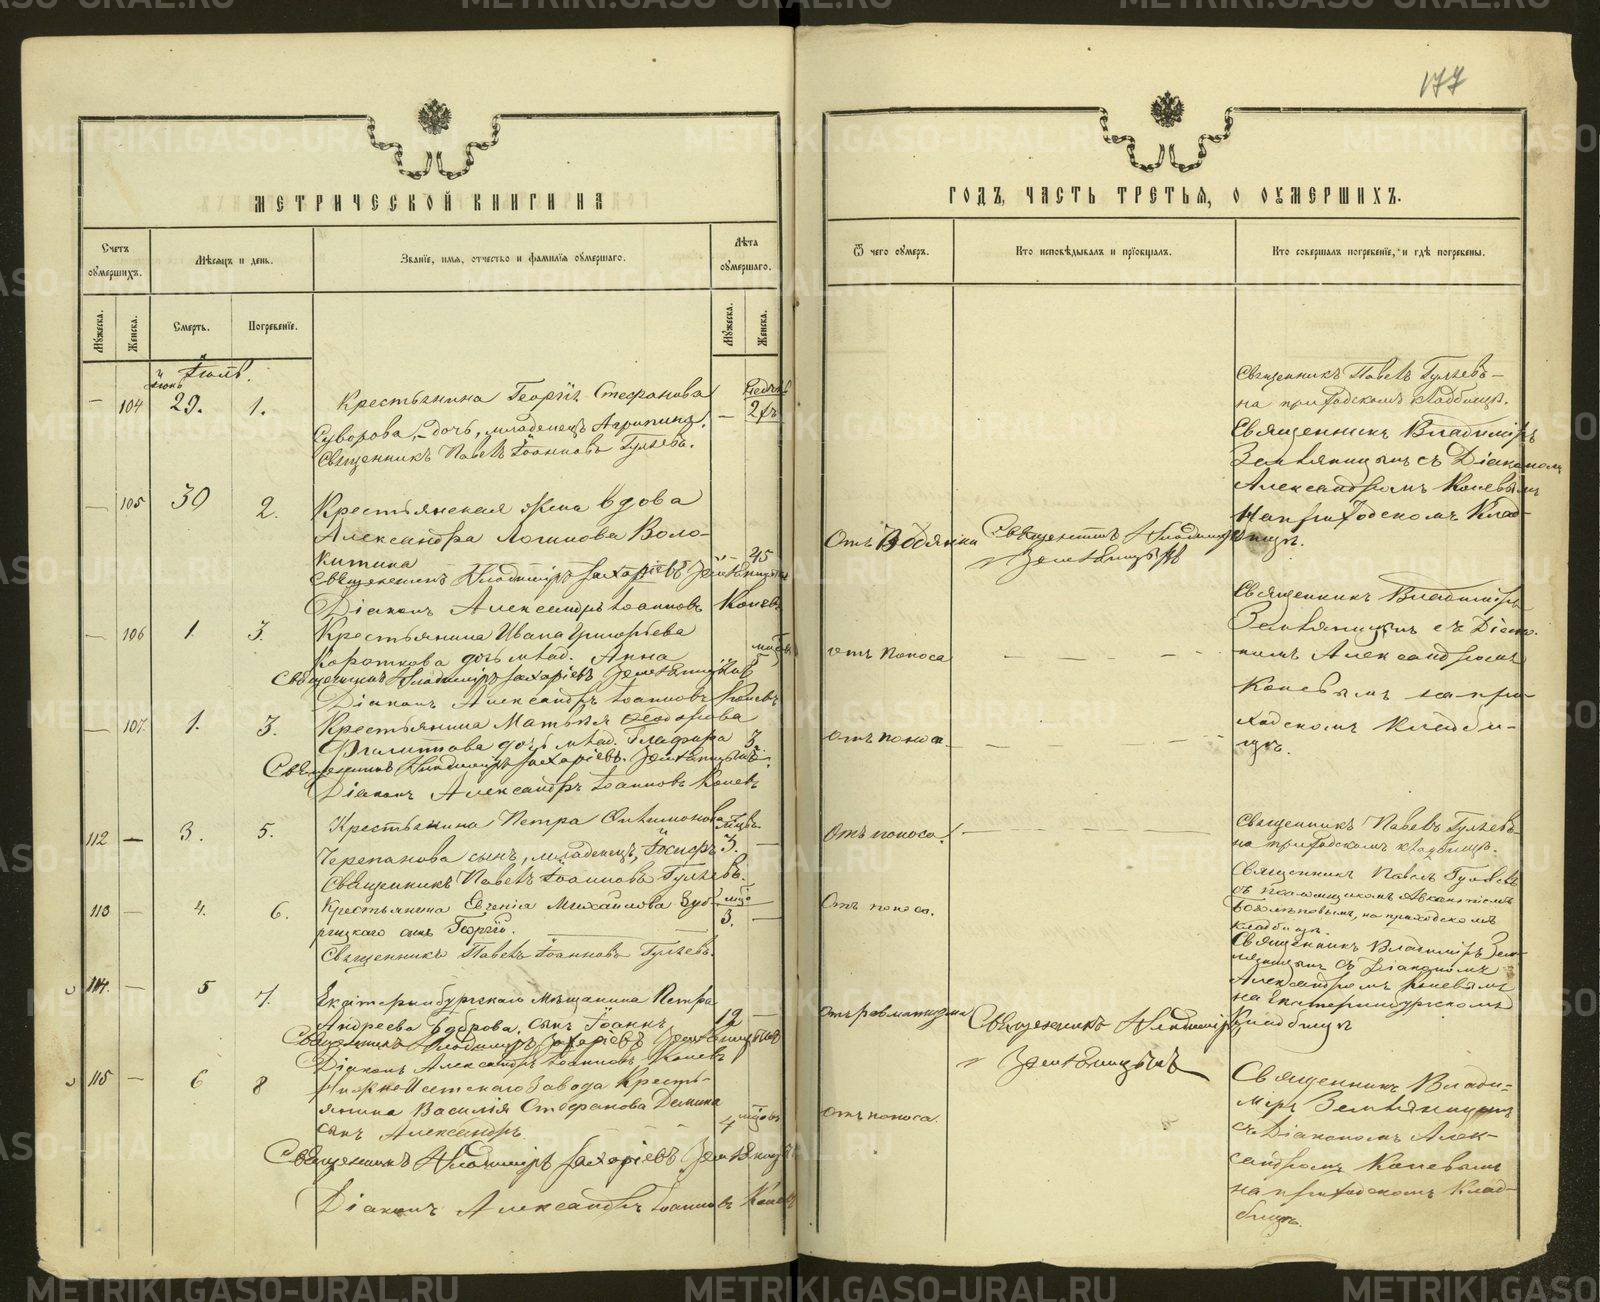 177
МЕТРИЧЕСКОЙ КНИГИ НА
Счетъ оумершихъ.
Мѣсяцъ и день.
Званіе, имя, отчество и фамилія оумершаго.
Лѣта оумершаго.
Мужеска.
Женска.
Смерть.
Погребеніе.
Мужеска.
Женска.
Іюнь Іюль.
— 104 29. 1. Крестьянина Георгія Стефанова
Суворова, дочь, младенецъ Агрипина. — 2
Священникъ Павелъ Іоанновъ Гуляевъ.
— 105 30 2. Крестьянская жена вдова
Александра Логинова Воло-
китина — 45
Священникъ Владиміръ Захаріевъ Земляницынъ
Діаконъ Александръ Іоанновъ Коневъ
— 106 1. 3. Крестьянина Ивана Григорьева
Короткова дочь млад. Анна
Священникъ Владиміръ Захаріевъ Земляницынъ
Діаконъ Александръ Іоанновъ Коневъ
— 107. 1. 3. Крестьянина Матвѣя Ѳеодорова
Филиппова дочь млад. Глафира 3.
Священникъ Владиміръ Захаріевъ Земляницынъ.
Діаконъ Александръ Іоанновъ Коневъ
112 — 3. 5. Крестьянина Петра
Черепанова сынъ, младенецъ, 3. —
Священникъ Павелъ Іоанновъ Гуляевъ.
113 — 4. 6. Крестьянина Евгенія Михайлова Зуб-
рицкаго сынъ Георгій. 3. —
Священникъ Павелъ Іоанновъ Гуляевъ.
114. — 5 7. Екатеринбургскаго Мѣщанина Петра
Андреева Боброва, сынъ Іоаннъ 19 —
Священникъ Владиміръ Захаріевъ Земляницынъ
Діаконъ Александръ Іоанновъ Коневъ
115 — 6 8 Нижне Исетскаго Завода Кресть-
янина Василія Стефанова Демина
сынъ Александръ. 4
Священникъ Владиміръ Захаріевъ Земляницынъ
Діаконъ Александръ Іоанновъ Коневъ
ГОДЪ, ЧАСТЬ ТРЕТЬЯ, О ОУМЕРШИХЪ.
Ѿ чего оумеръ.
Кто исповѣдывалъ и пріобщалъ.
Кто совершалъ погребеніе, и гдѣ погребены.
Священникъ Павелъ Гуляевъ —
на приходскомъ кладбищѣ.
Священникъ Владиміръ
Земляницынъ съ Діакономъ
Александромъ Коневымъ
На приходскомъ Клад-
бищѣ.
Отъ Водянки Священникъ Владиміръ
Земляницынъ
Священникъ Владиміръ
Земляницынъ съ Діако-
номъ Александромъ
Коневымъ на при-
ходскомъ Кладби-
щѣ.
отъ поноса — — —
отъ поноса. — — —
Отъ поноса. — — —
Священникъ Павелъ Гуляевъ
на приходскомъ кладбищѣ.
Отъ поноса.
Священникъ Павелъ Гуляевъ
съ псаломщикомъ
на приходскомъ
кладбищѣ.
Отъ ревматизма Священникъ Владиміръ
Земляницынъ
Священникъ Владиміръ Зем-
ляницынъ съ Діакономъ
Александромъ Коневымъ
на Екатеринбургскомъ
Кладбищѣ
отъ поноса.
Священникъ Влади-
міръ Земляницынъ
съ Діакономъ Алек-
сандромъ Коневымъ
на приходскомъ Клад-
бищѣ.
METRIKI.GASO-URAL.RU